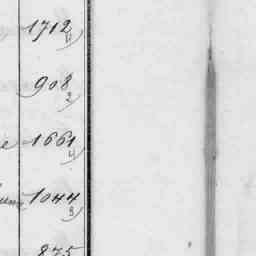 1712
908
2
1661
4
1044
3
875